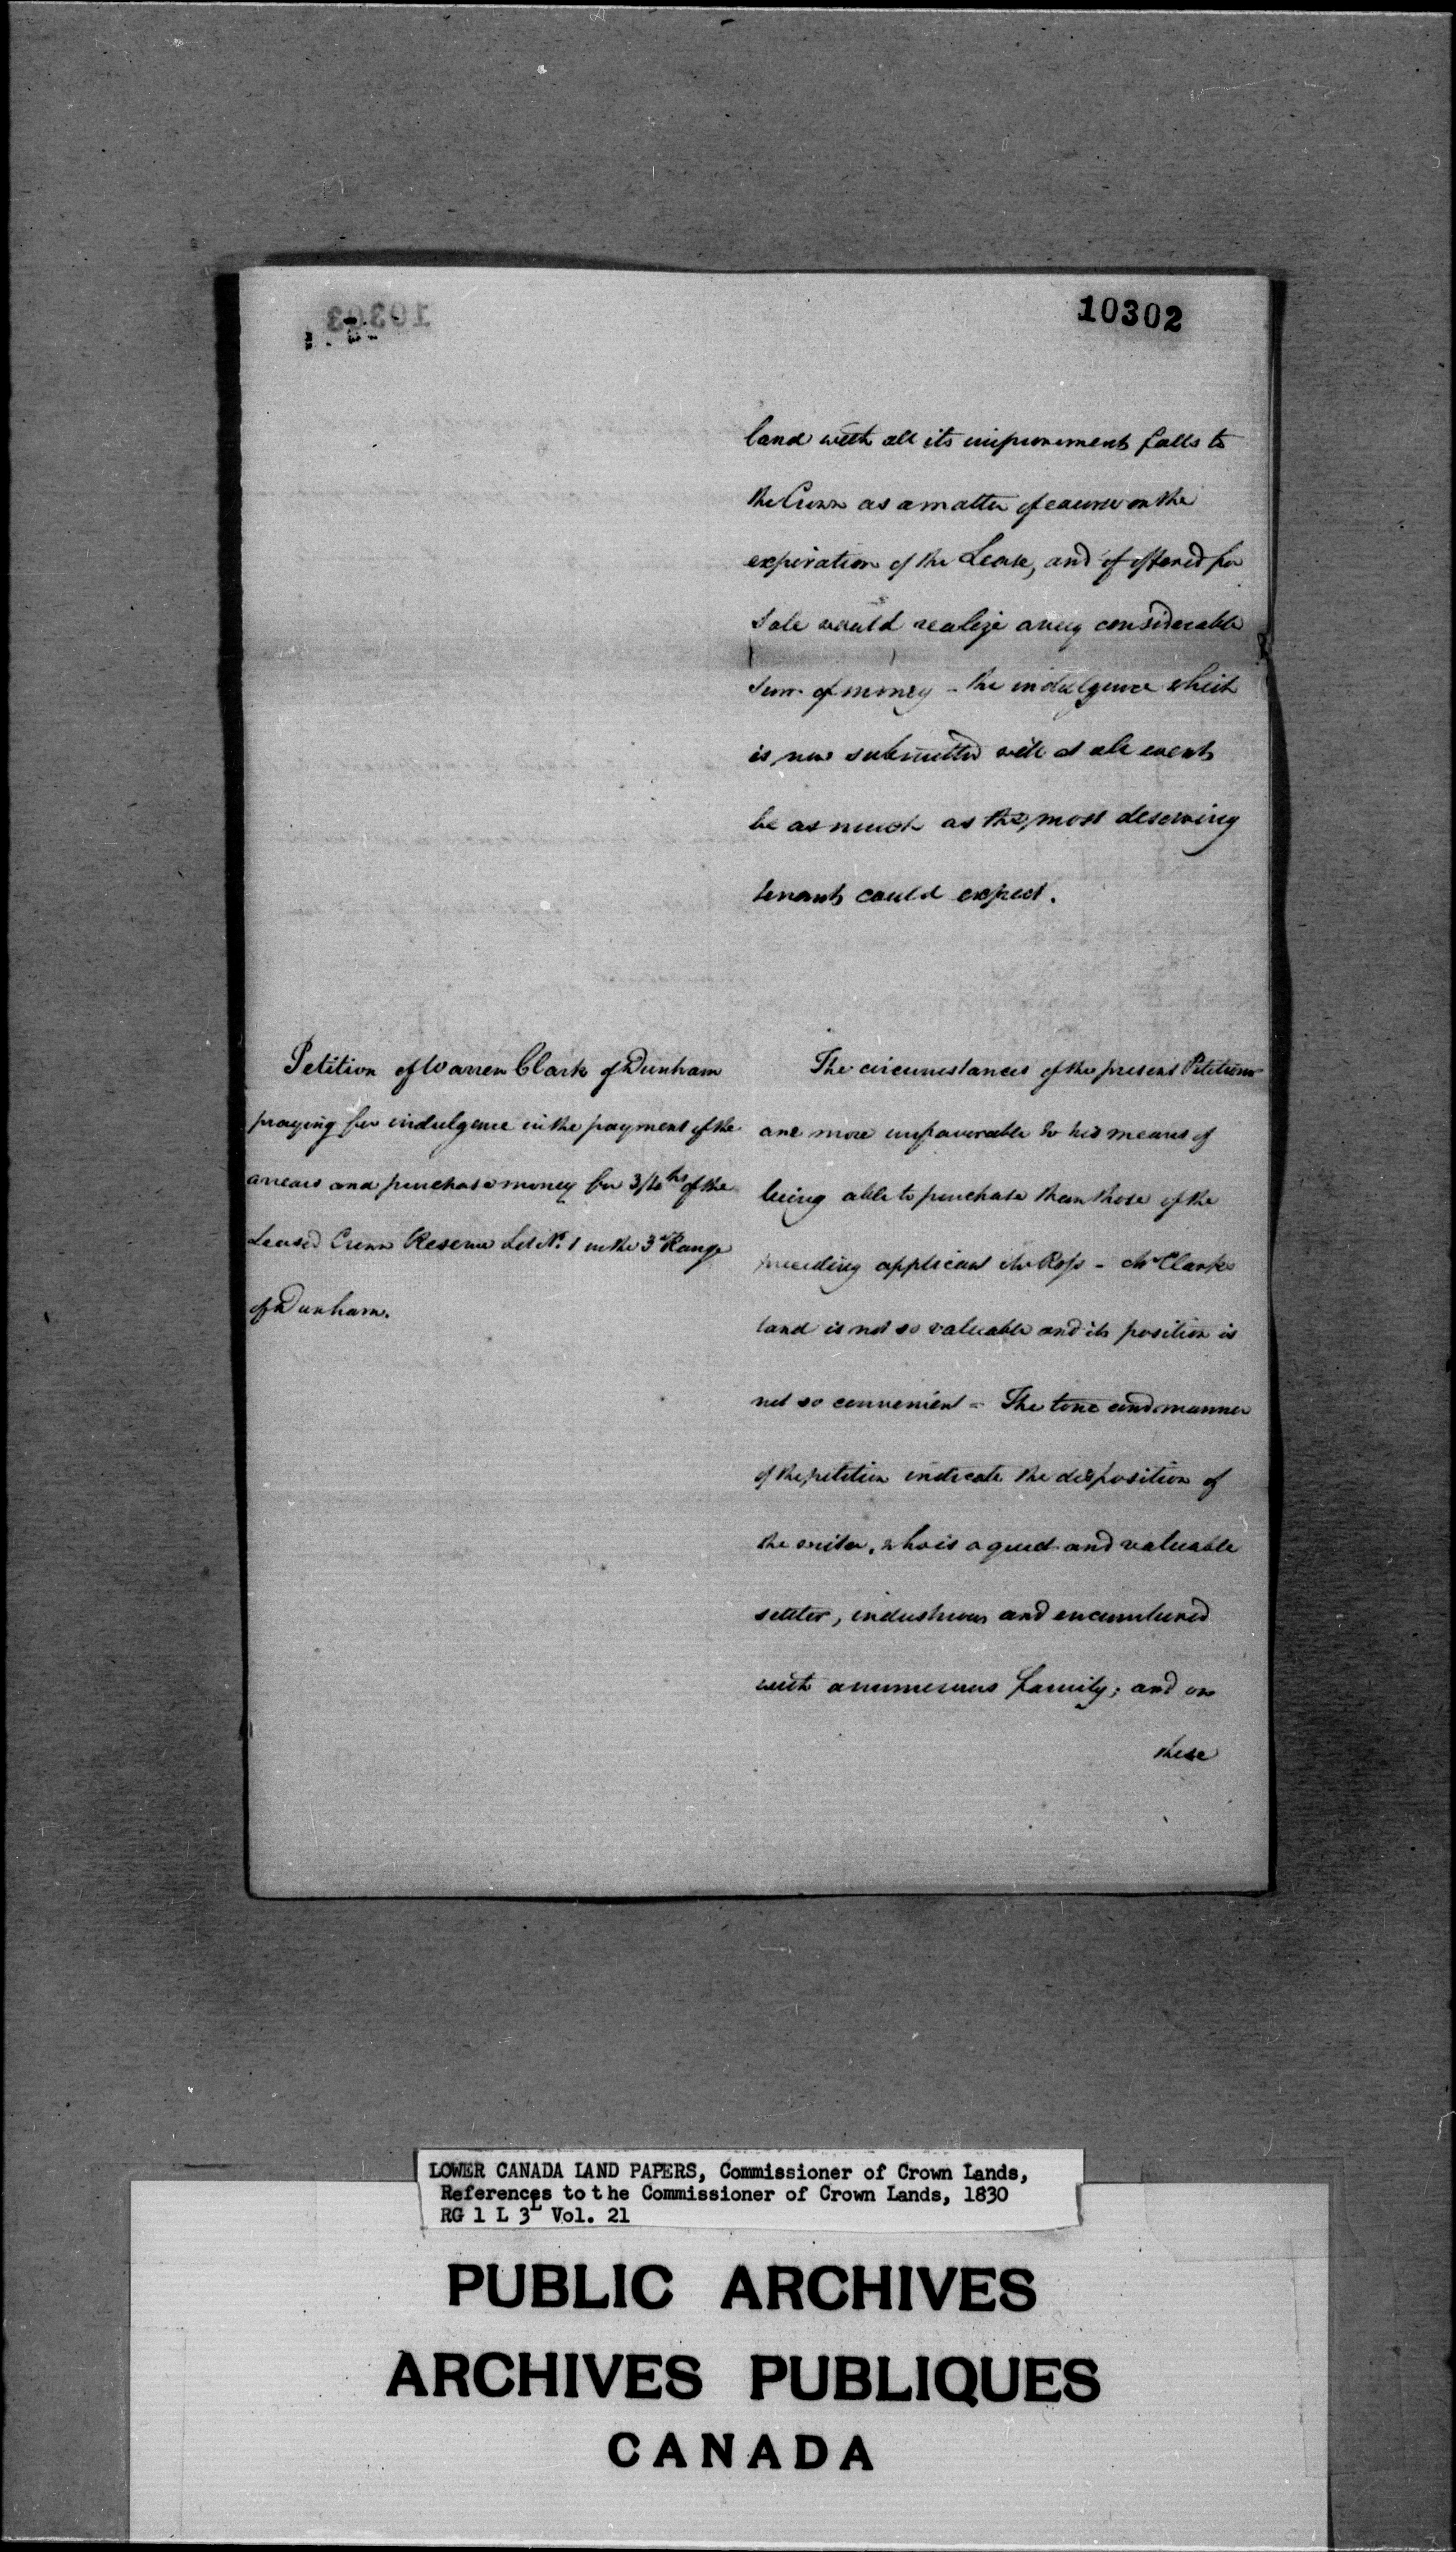 10302
land with all its improvements falls to
the Crown as a matter of course on the
expiration of the Lease, and if offered for
sale would realize a very considerable
sum of money - the indulgence which
is now submitted will at all events
be as much as the most deserving
tenants could expect.
Petition of Warren Clark of Dunham
praying for indulgence in the payment of the
arrears and purchase money for 3/4ths of the
Leased Crown Reserve Lot No. 1 in the 3d Range
of Dunham.
The circumstances of the present Petitioner
are more unfavorable to his means of
being able to purchase than those of the
preceding applicant Mr Ross - Mr Clarks
land is not so valuable and its position is
not so convenient - The tone and manner
of the petition indicate the disposition of
the writer, who is a quiet and valuable
settler, industrious and encumbered
with a numerous family; and on
these
LOWER CANADA LAND PAPERS, Commissioner of Crown Lands,
References to the Commissioner of Crown Lands, 1830
RG 1 L 3L Vol. 21
PUBLIC ARCHIVES
ARCHIVES PUBLIQUES
CANADA